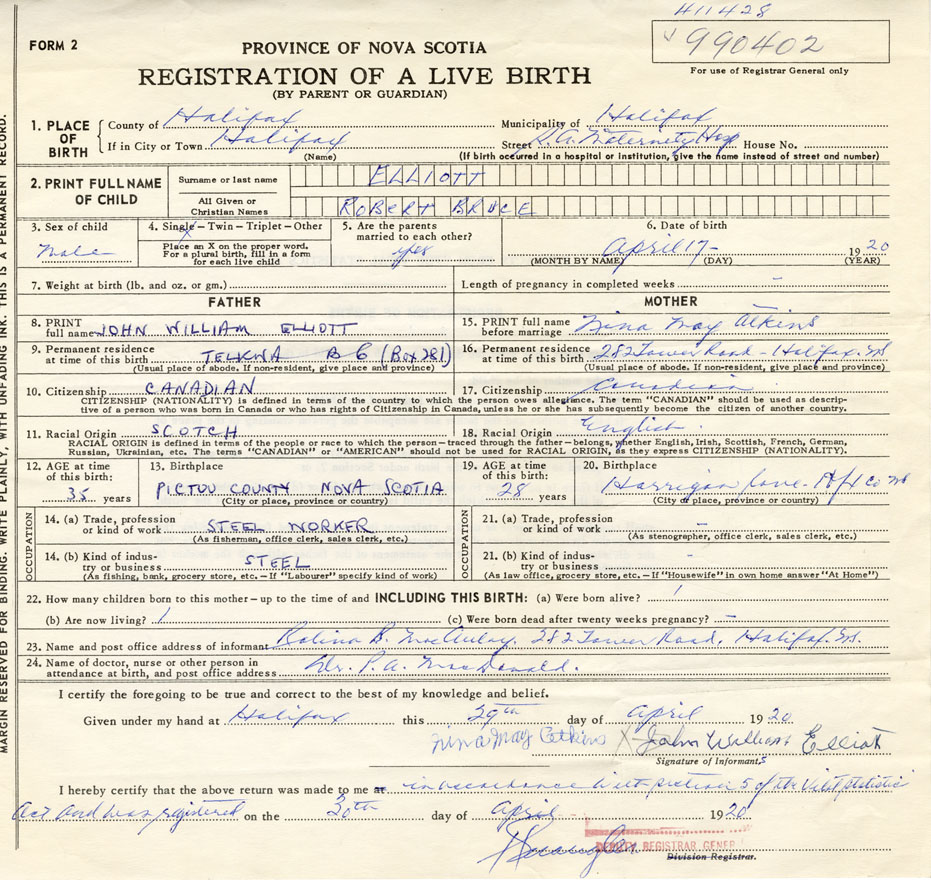 411428
FORM 2
PROVINCE OF NOVA SCOTIA
990402
REGISTRATION OF A LIVE BIRTH
For use of Registrar General only
(BY PARENT OR GUARDIAN)
1. PLACE OF BIRTH
County of Halifax Municipality of Halifax
If in City or Town Halifax Street S.A. Maternity Hosp House No.
(Name) (If birth occurred in a hospital or institution, give the name instead of street and number)
2. PRINT FULL NAME OF CHILD
Surname or last name ELLIOTT
All Given or Christian Names ROBERT BRUCE
3. Sex of child Male
4. Single – Twin – Triplet – Other
Place an X on the proper word.
For a plural birth, fill in a form
for each live child
5. Are the parents
married to each other? yes
6. Date of birth
April 17 - 1920
(MONTH BY NAME) (DAY) (YEAR)
7. Weight at birth (lb. and oz. or gm.) Length of pregnancy in completed weeks -
FATHER MOTHER
8. PRINT
full name JOHN WILLIAM ELLIOTT
15. PRINT full name
before marriage Nina May Atkins
9. Permanent residence
at time of this birth TELKWA B C (Box 281)
(Usual place of abode. If non-resident, give place and province)
16. Permanent residence
at time of this birth 282 Tower Road - Halifax. NS
(Usual place of abode. If non-resident, give place and province)
10. Citizenship CANADIAN 17. Citizenship Canadian
CITIZENSHIP (NATIONALITY) is defined in terms of the country to which the person owes allegiance. The term "CANADIAN" should be used as descrip-
tive of a person who was born in Canada or who has rights of Citizenship in Canada, unless he or she has subsequently become the citizen of another country.
11. Racial Origin SCOTCH 18. Racial Origin English
RACIAL ORIGIN is defined in terms of the people or race to which the person – traced through the father – belongs, whether English, Irish, Scottish, French, German,
Russian, Ukrainian, etc. The terms "CANADIAN" or "AMERICAN" should not be used for RACIAL ORIGIN, as they express CITIZENSHIP (NATIONALITY).
12. AGE at time
of this birth:
35 years
13. Birthplace
PICTOU COUNTY NOVA SCOTIA
(City or place, province or country)
19. AGE at time
of this birth:
28 years
20. Birthplace
Harrigan Cove - Hfx Co NS
(City or place, province or country)
OCCUPATION
14. (a) Trade, profession
or kind of work STEEL WORKER
(As fisherman, office clerk, sales clerk, etc.)
14. (b) Kind of indus-
try or business STEEL
(As fishing, bank, grocery store, etc. – If "Labourer" specify kind of work)
OCCUPATION
21. (a) Trade, profession
or kind of work -
(As stenographer, office clerk, sales clerk, etc.)
21. (b) Kind of indus-
try or business -
(As law office, grocery store, etc. – If "Housewife" in own home answer "At Home")
22. How many children born to this mother – up to the time of and INCLUDING THIS BIRTH: (a) Were born alive? 1
(b) Are now living? 1 (c) Were born dead after twenty weeks pregnancy? -
23. Name and post office address of informant B. MacAulay, 282 Tower Road, Halifax. NS.
24. Name of doctor, nurse or other person in
attendance at birth, and post office address Dr. P. A. MacDonald.
I certify the foregoing to be true and correct to the best of my knowledge and belief.
Given under my hand at Halifax this 29th day of April 1920
Nina May Atkins X John William Elliott
Signature of Informant,s
I hereby certify that the above return was made to me at in accordance with section 5 of the Vital Statistic
Act and was registered on the 30th day of April 1920
DEPUTY REGISTRAR GENER
Division Registrar.
MARGIN RESERVED FOR BINDING. WRITE PLAINLY, WITH UNFADING INK. THIS IS A PERMANENT RECORD.